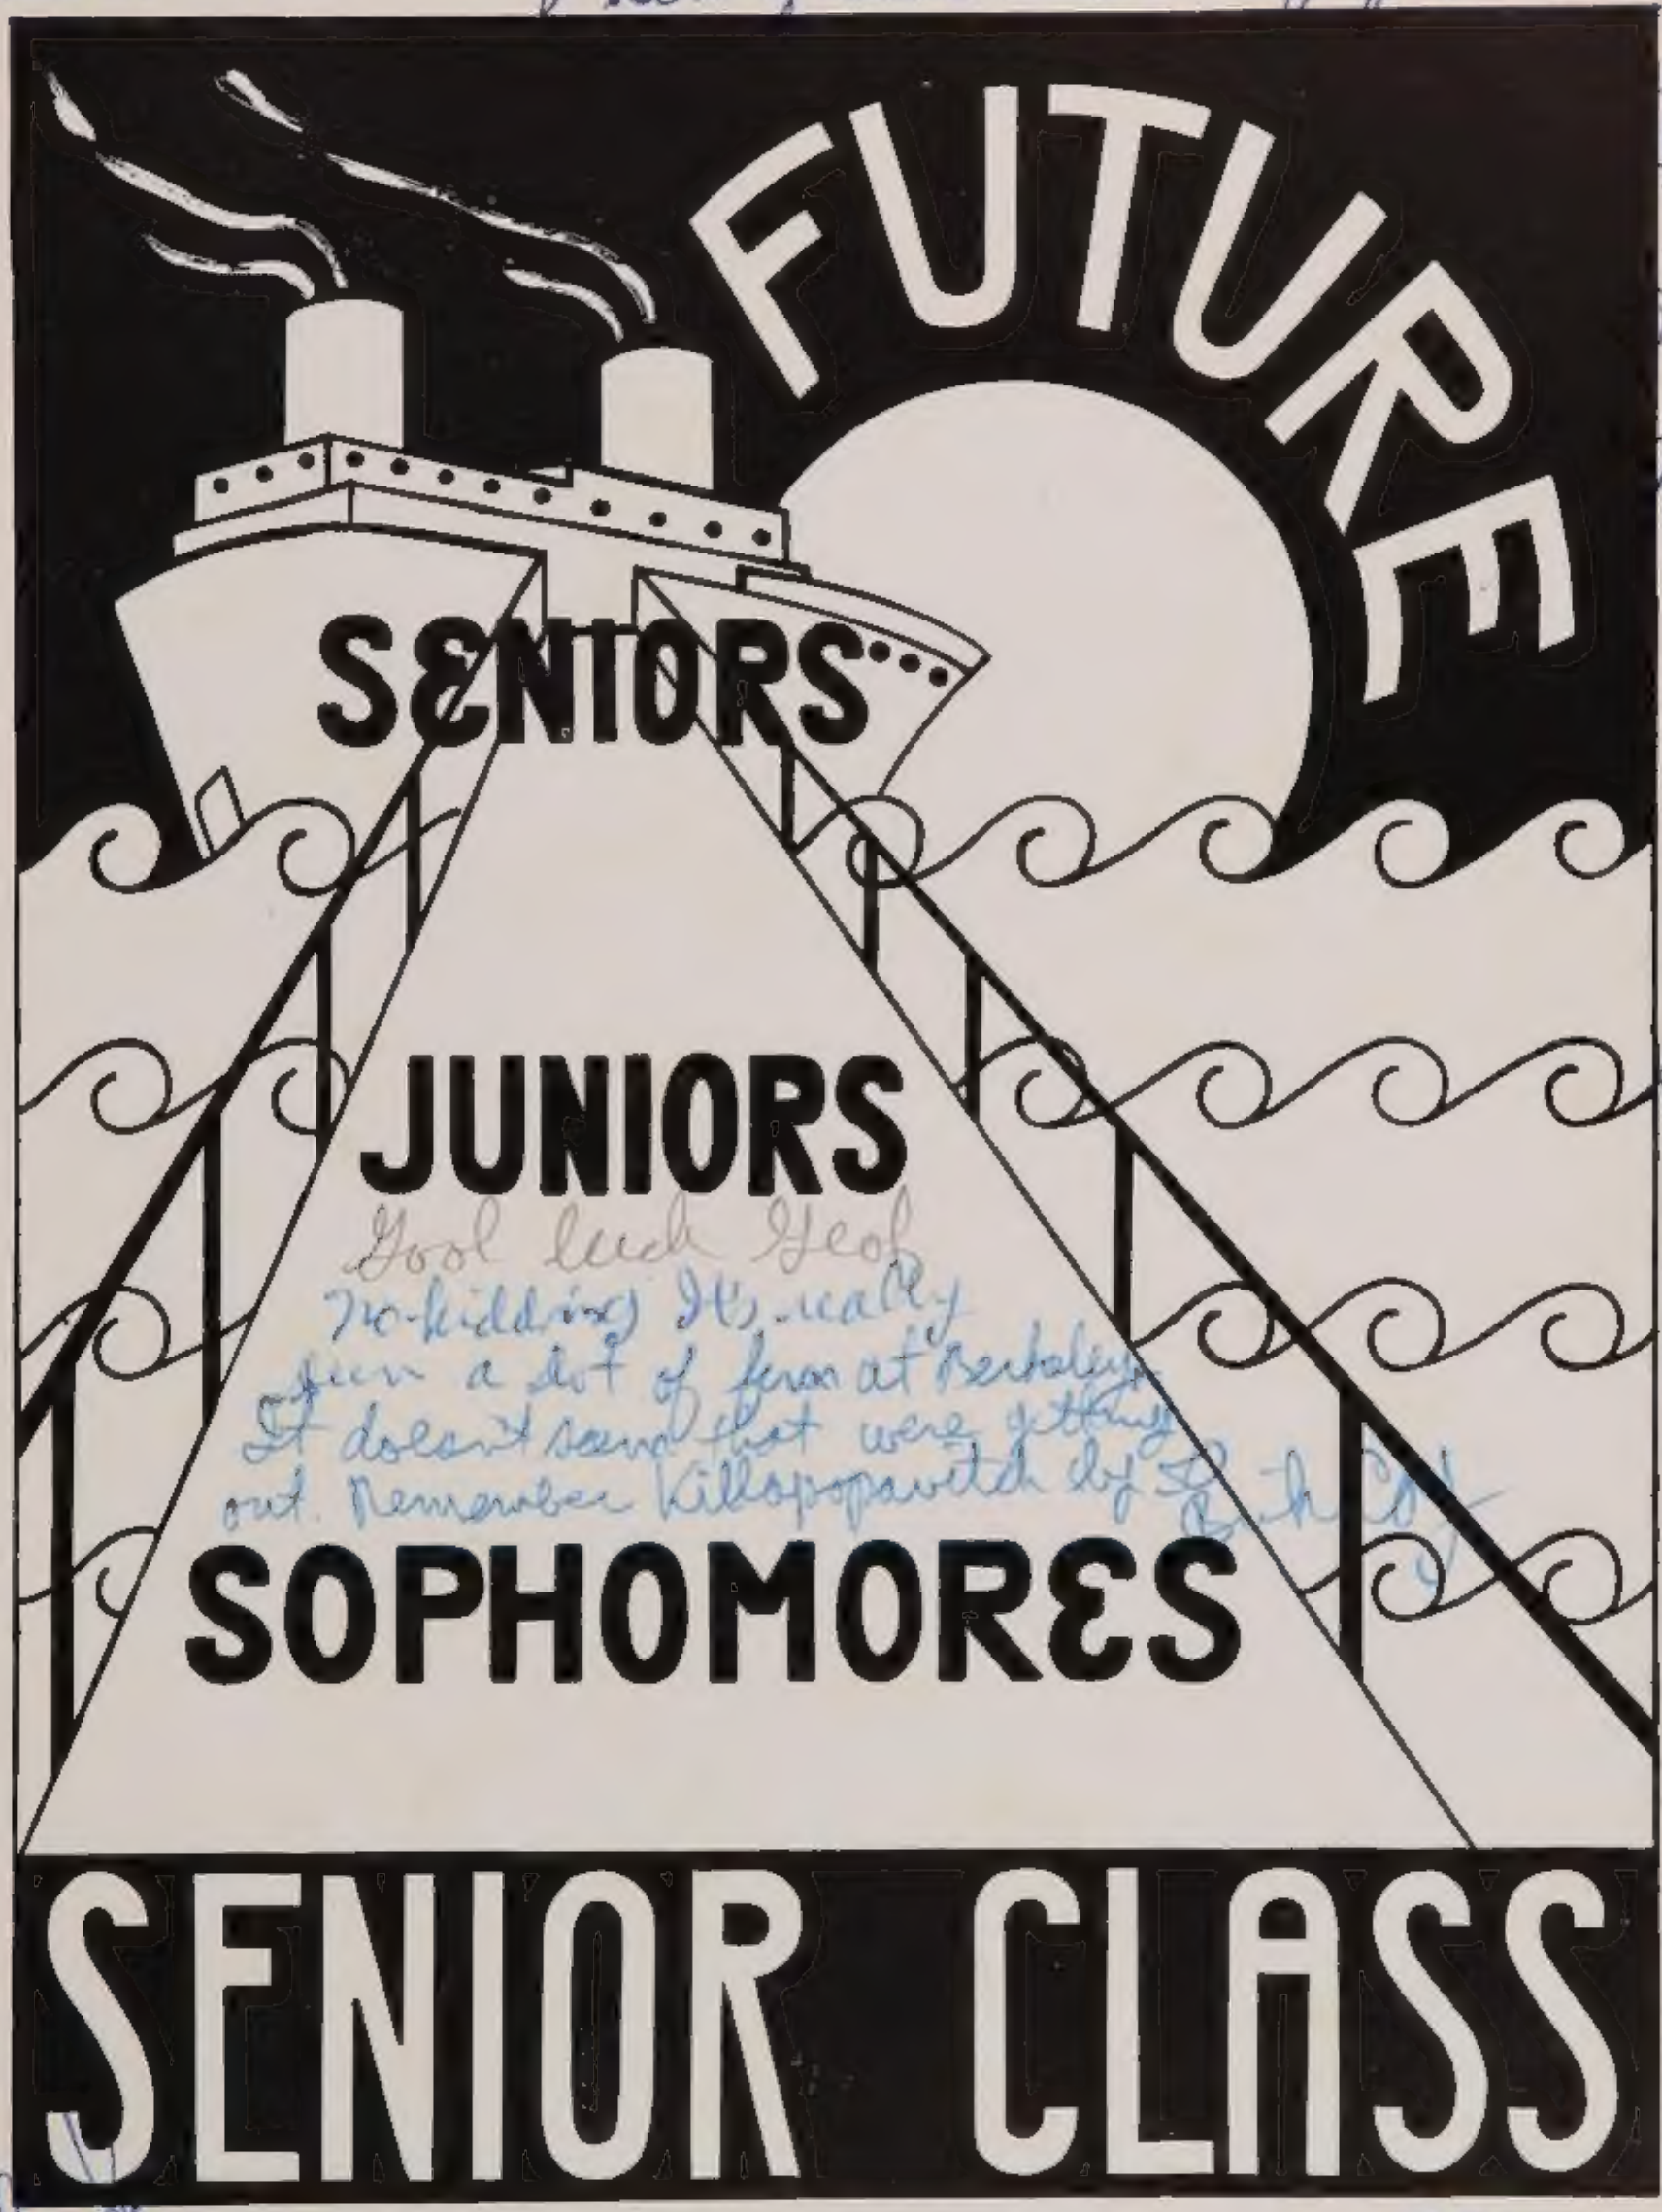 FUTURE
SENIORS
JUNIORS
Good luck Geof
No-kidding It's really
been a lot of fun at Berkeley
It doesn't seem that were getting
out. Remember Killapopavitch by
SOPHOMORES
SENIOR CLASS